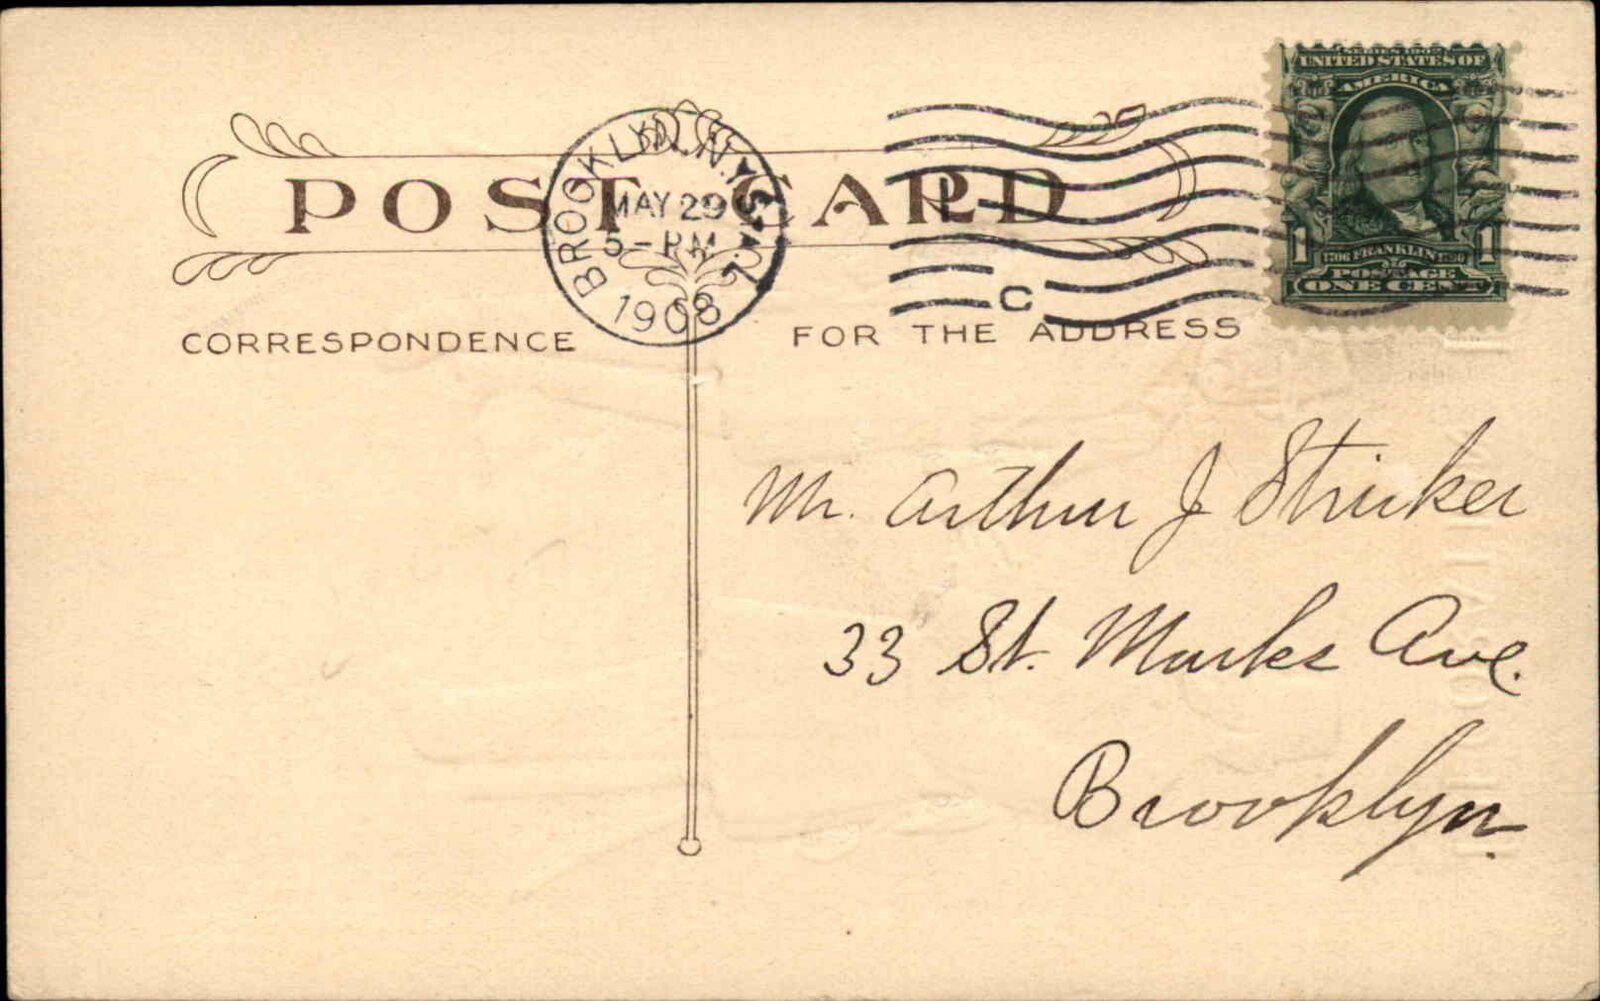 SERIES 1902
UNITED STATES OF
AMERICA
POST CARD
BROOKLYN, N.Y.
MAY 29
5 - PM
1908
C
1 1
1706 FRANKLIN 1790
POSTAGE
ONE CENT
CORRESPONDENCE
FOR THE ADDRESS
Mr. Arthur J Stricker
33 St. Marks Ave.
Brooklyn